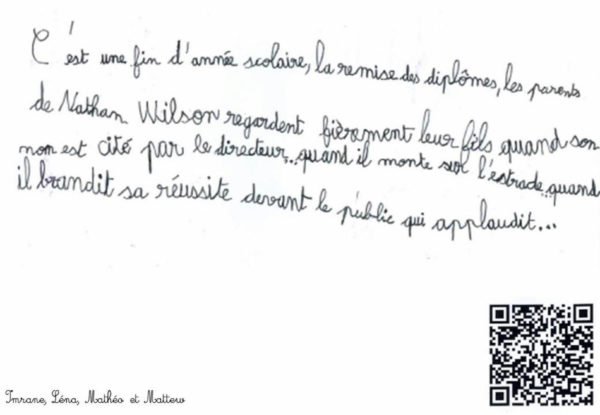 C'est une fin d'année scolaire, la remise des diplômes, les parents
de Nathan Wilson regardent fièrement leur fils quand son
nom est cité par le directeur,..quand il monte sur l'estrade..quand
il brandit sa réussite devant le public qui applaudit...
Imrane, Léna, Mathéo et Mattew